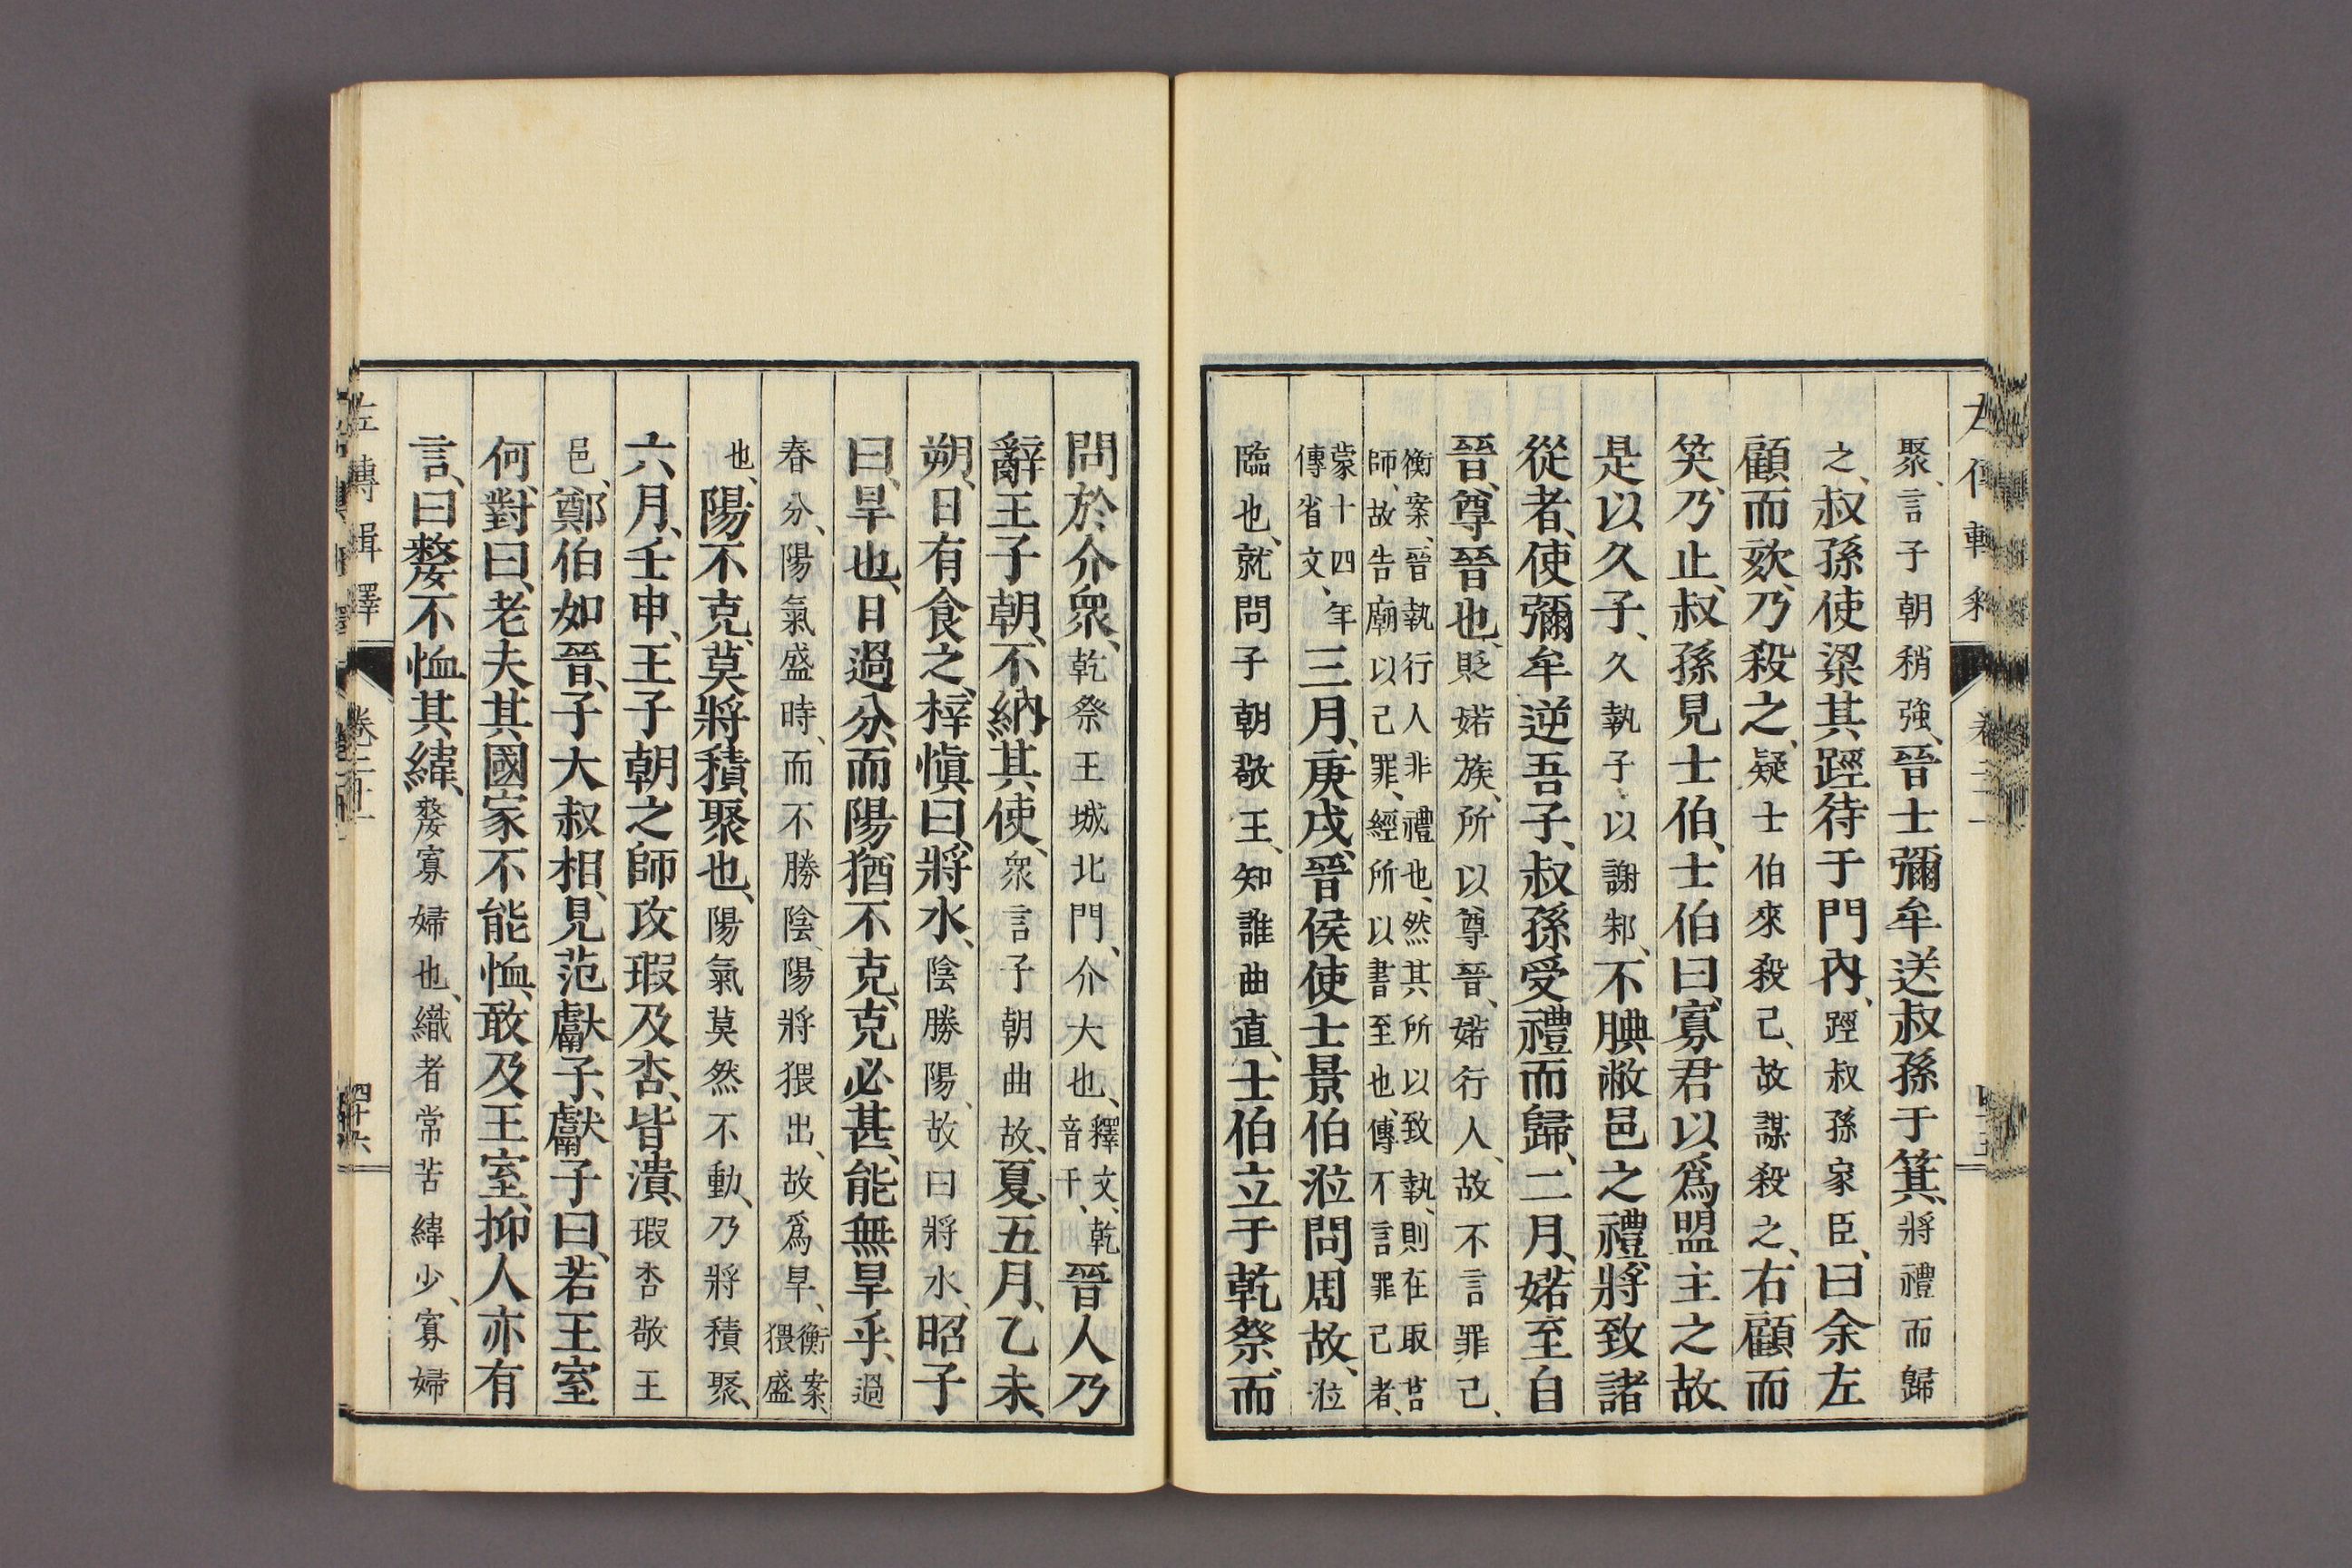 聚、言子朝稍強、晉士彌牟送叔孫于箕、將禮而歸
之、叔孫使梁其踁待于門內、踁叔孫家臣、曰余左
顧而欬、乃殺之、疑士伯來殺己、故謀殺之、右顧而
笑、乃止、叔孫見士伯、士伯曰、寡君以爲盟主之故、
是以久子、久執子、以謝邾、不腆敝邑之禮、將致諸
從者、使彌牟逆吾子、叔孫受禮而歸、二月、婼至自
晉、尊晉也、貶婼族、所以尊晉、婼行人、故不言罪己、
衡案、晉執行人非禮也、然其所以致執、則在取莒
師、故告廟以己罪、經所以書至也、傳不言罪己者、
蒙十四年
傳省文、
三月、庚戌、晉侯使士景伯涖問周故、涖
臨也、就問子朝敬王、知誰曲直、士伯立于乾祭、而
問於介衆、乾祭王城北門、介大也、釋文、乾
音干、
晉人乃
辭王子朝、不納其使、衆言子朝曲故、夏、五月、乙未、
朔、日有食之、梓愼曰、將水、陰勝陽、故曰將水、昭子
曰、旱也、日過分、而陽猶不克、克必甚、能無旱乎、過
春分、陽氣盛時、而不勝陰、陽將猥出、故爲旱、衡案、
猥盛
也、陽不克、莫將積聚也、陽氣莫然不動、乃將積聚、
六月、壬申、王子朝之師攻瑕及杏、皆潰、瑕杏敬王
邑、鄭伯如晉、子大叔相、見范獻子、獻子曰、若王室
何、對曰、老夫其國家不能恤、敢及王室、抑人亦有
言、曰嫠不恤其緯、嫠寡婦也、織者常苦緯少、寡婦
左傳輯釋
卷二十一
四十六